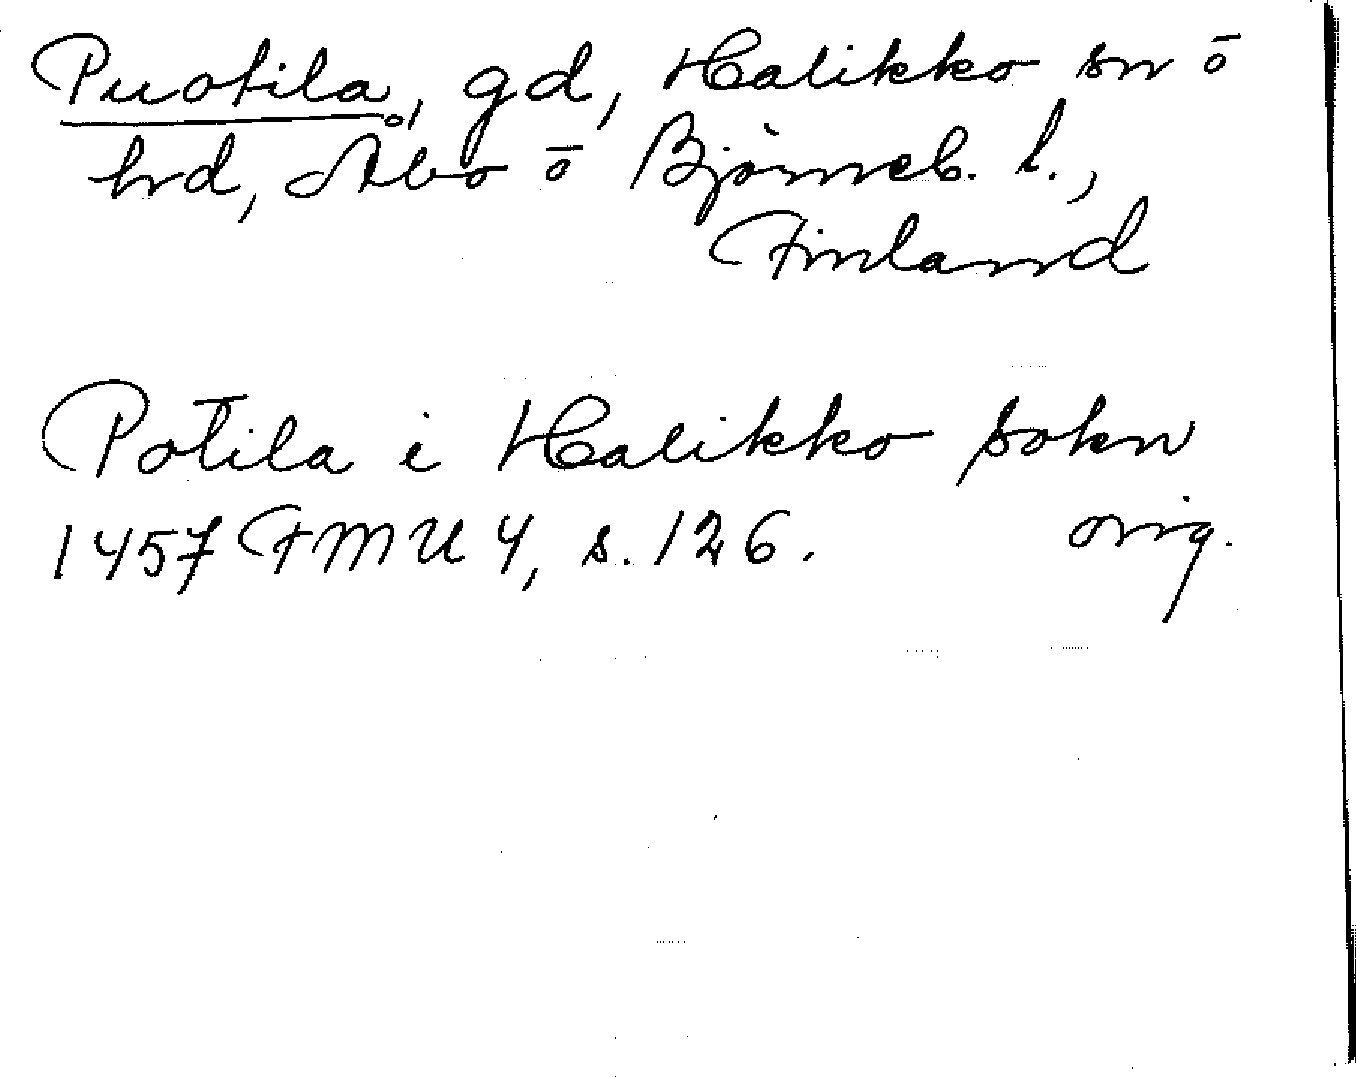 Puotila, gd, Halikko sn ō
hd, Åbo ō Björneb. l.,
Finland
Potila i Halikko sokn
1457 FMU 4, s. 126. orig.